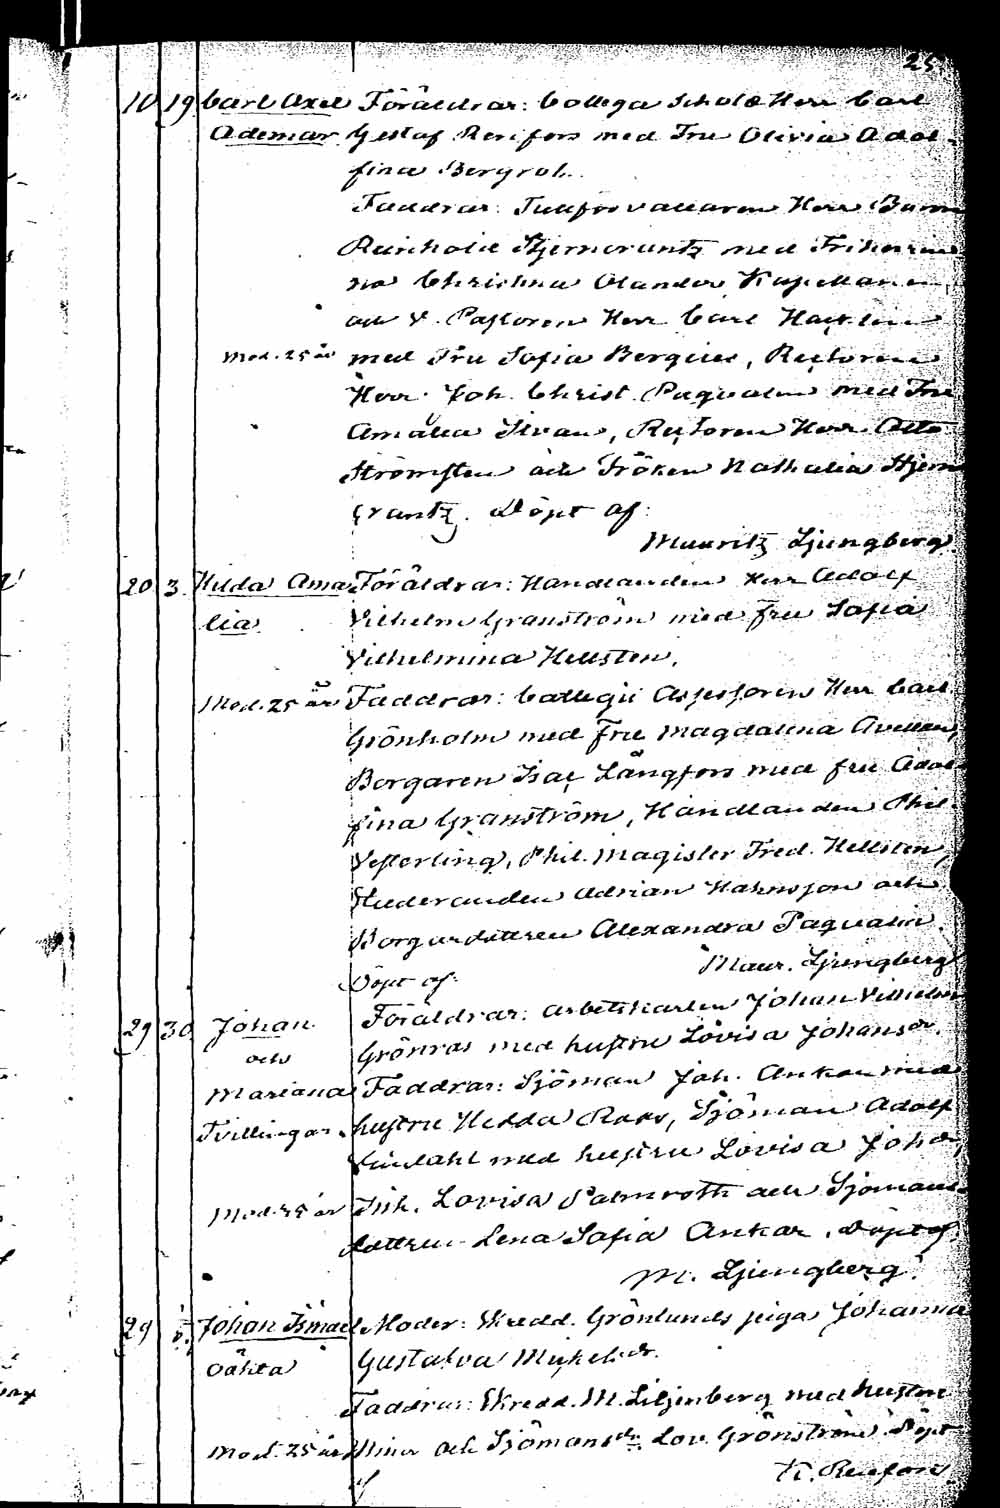 25.
10 19 Carl Axel Föräldrar: Collega Scholæ Herr Carl
Ademar Gustaf Renfors med Fru Olivia Adol-
fina Bergroth.
Faddrar: Tullförvaltaren Herr Baron
Reinhold Stjerncrantz med Friherrin
na Christina Olander, Kapellanen
och V. Pastoren Herr Carl
Mod. 25 år med Fru Sofia Bergius, Rectoren
Herr Joh. Christ. Paqvalin med Fru
Amalia Silvan, Rectoren Herr Otto
Strömsten och Fröken Nathalia Stjern
crantz. Döpt af:
Mauritz Ljungberg.
20 3 Hilda Ama- Föräldrar: Handlanden Herr Adolf
lia. Vilhelm Granström med fru Sofia
Vilhelmina Hellsten.
Mod. 25 år Faddrar: Collegii Assessoren Herr Carl
Grönholm med fru Magdalena Avellan,
Borgaren Isac Långfors med fru Adol-
fina Granström, Handlanden Phil.
Vesterling, Phil. Magister Fred. Hellsten,
Studeranden Adrian Hahnsson och
Borgardottren Alexandra Paqvalin.
Döpt af: Maur. Ljungberg
29 30 Johan Föräldrar: Arbetskarlen Johan Vilhelm
och Grönroos med hustru Lovisa Johansdr.
Mariana Faddrar: Sjöman Joh. Ankar med
Tvillingar. hustru Hedda Roos, Sjöman Adolf
med hustru Lovisa Johdr,
Mod. år Inh. Lovisa Palmroth och Sjömans-
dottren Lena Sofia Ankar. Döpt af
M. Ljungberg.
29 Johan Ismael Moder: Skredd. Grönlunds piga Johanna
Oäkta Gustafva Mickelsdr.
Faddrar: Skredd. M. Liljenberg med hustru
Mod. 25 år Mina och Sjömansdr Lov. Grönström. Döpt
af K. Renfors.